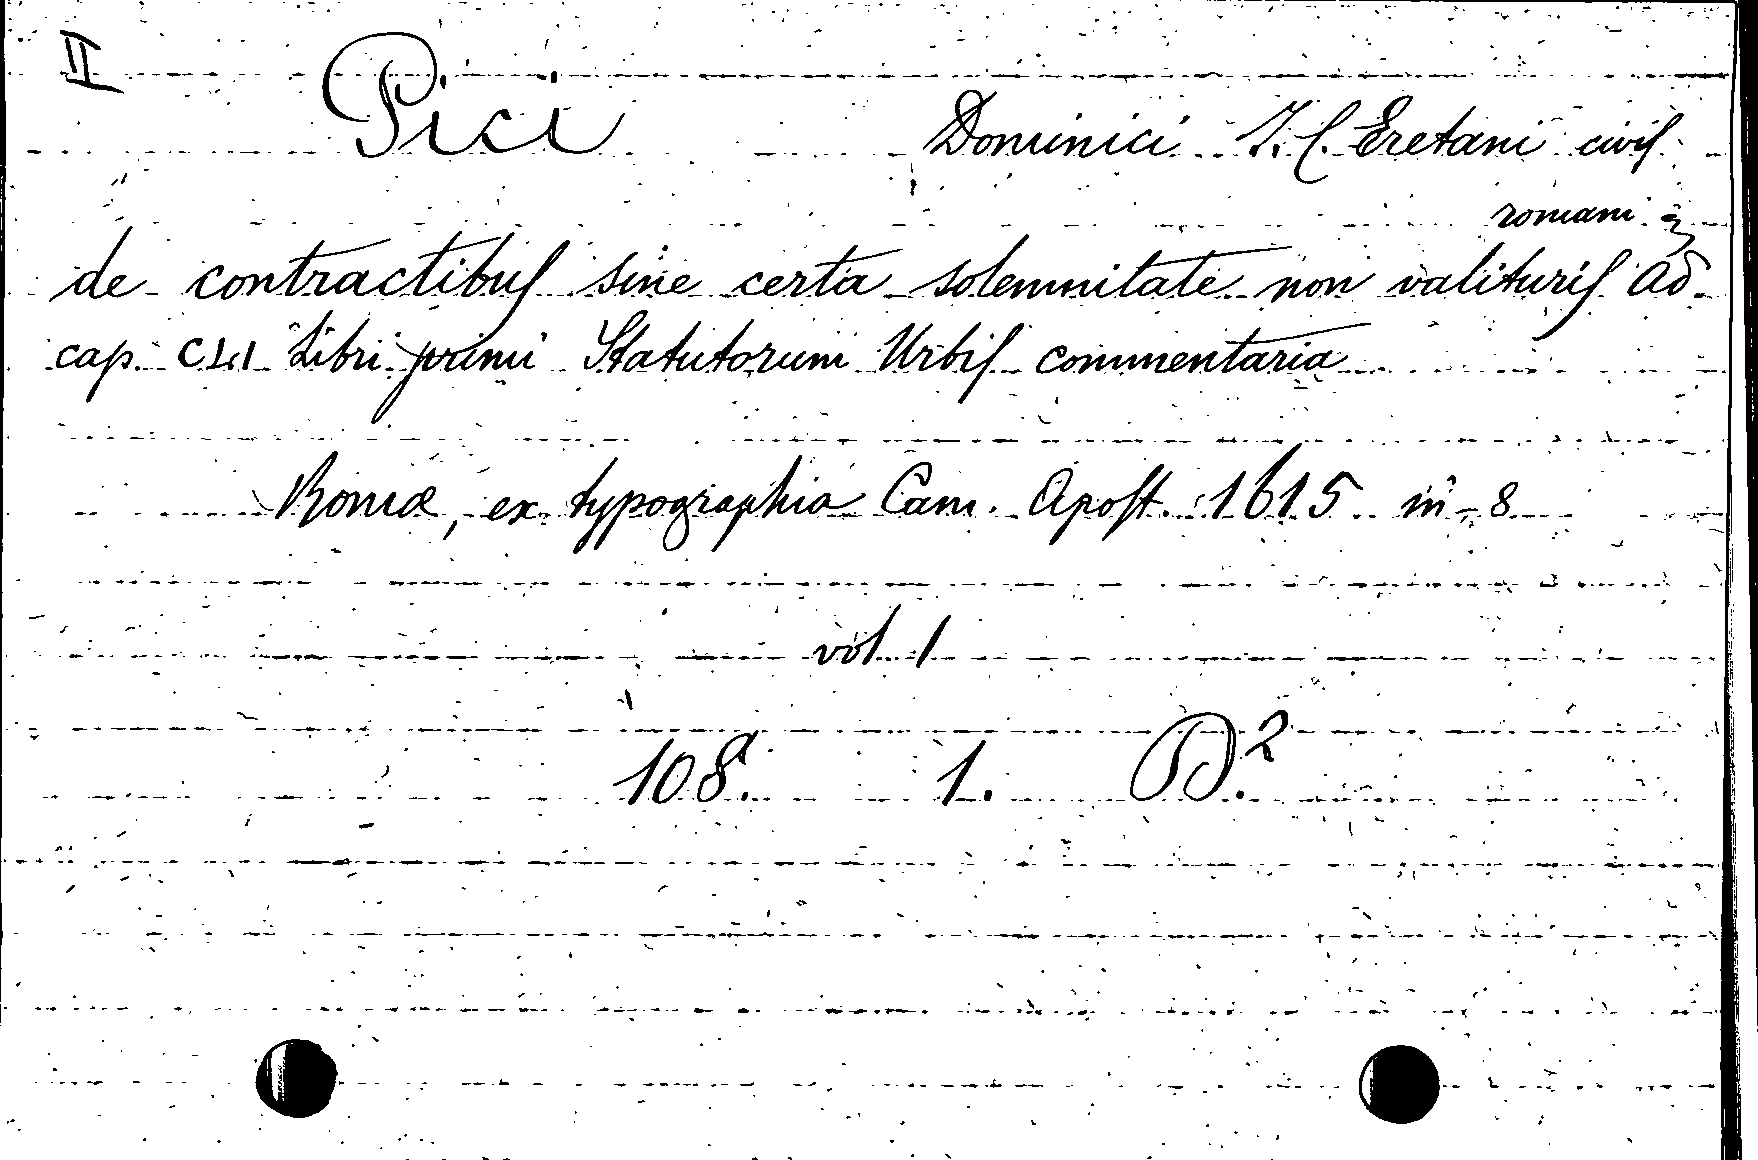 II
Pici Dominici I. C. Eretani civis
romani
de contractibus sine certa solemnitate non valituris ad
cap. CLI Libri primi Statutorum Urbis commentaria
Romæ, ex typographia Cam. Apost. 1615 in-8
vol. 1
108. 1. D.2